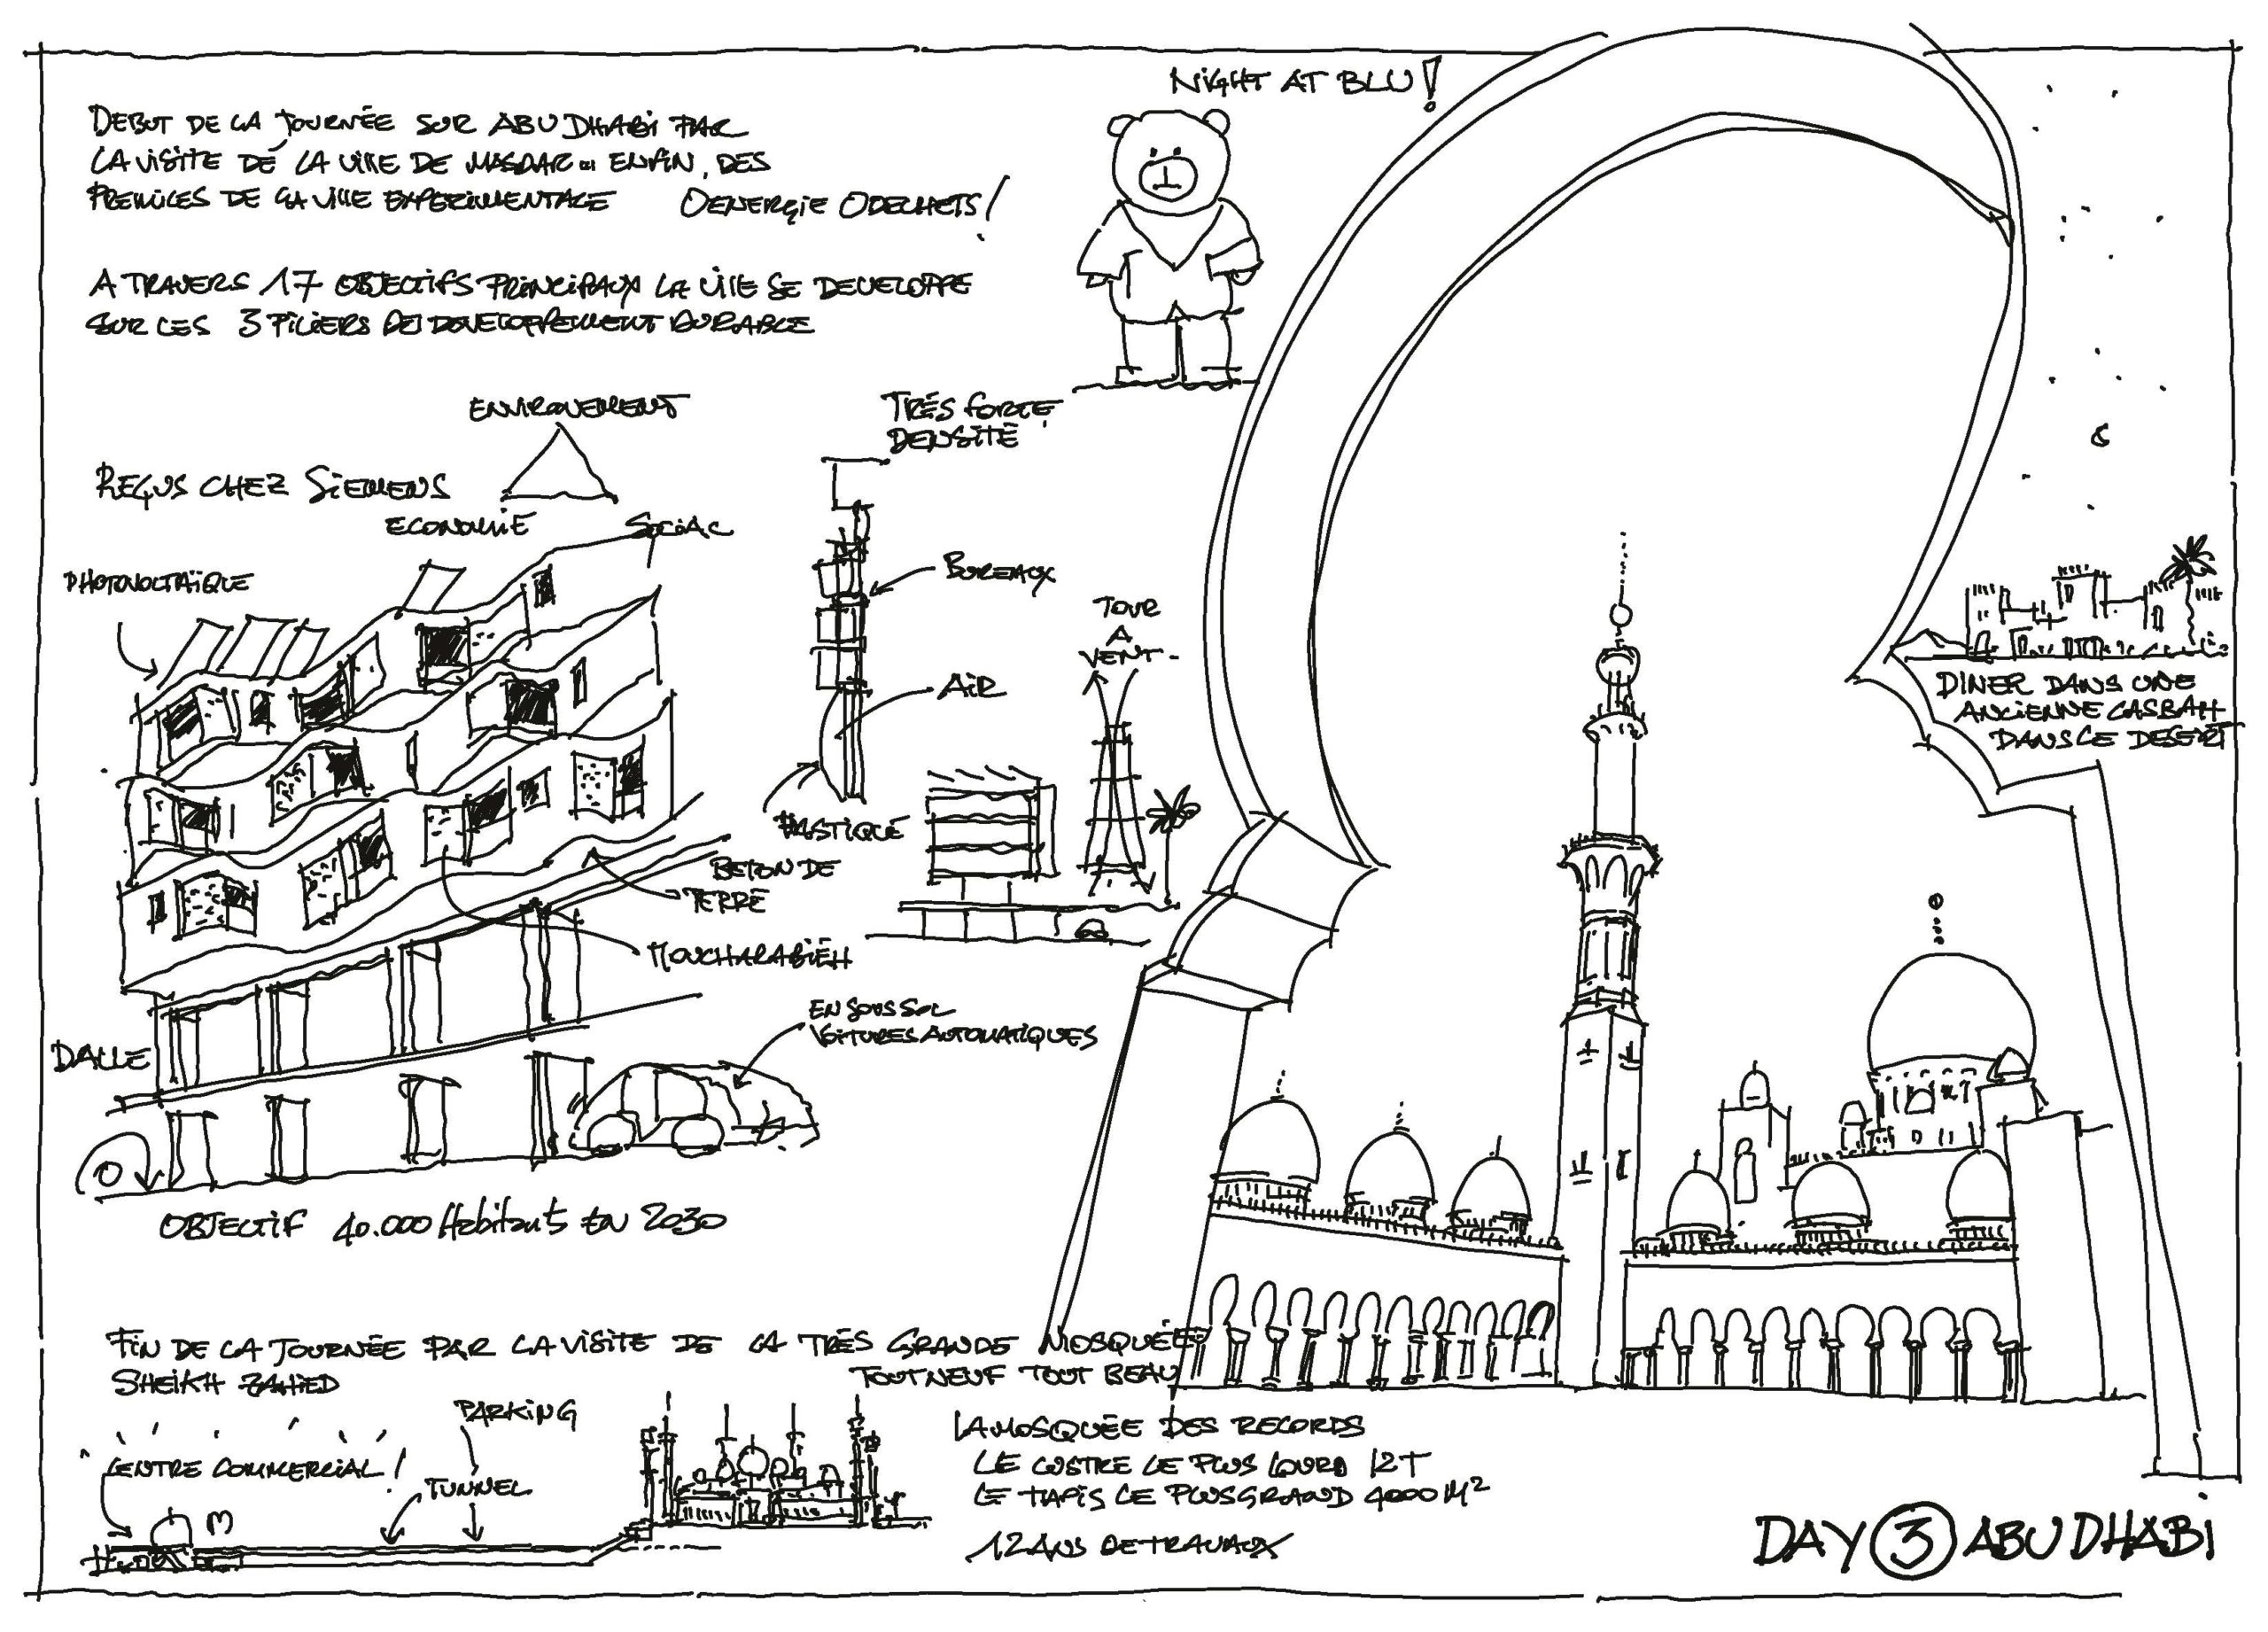 NIGHT AT BLU !
DEBUT DE LA JOURNÉE SUR ABU DHABI PAR
LA VISITE DE LA VILLE DE MASDAR .. ENFIN, DES
PREMICES DE LA VILLE EXPERIMENTALE 0ENERGIE 0DECHETS !
A TRAVERS 17 OBJECTIFS PRINCIPAUX LA VILLE SE DEVELOPPE
SUR LES 3 PILIERS DU DEVELOPPEMENT DURABLE
ENVIRONEMENT
REÇUS CHEZ SIEMENS
ECONOMIE SOCIAL
TRÉS FORTE
DENSITÉ
PHOTOVOLTAÏQUE
BUREAUX
TOUR
A
VENT
AIR
PLASTIQUE
BETON DE
TERRE
MOUCHARABIÉH
DALLE
EN SOUS SOL
VOITURES AUTOMATIQUES
OBJECTIF 40.000 Habitants EN 2030
DINER DANS UNE
ANCIENNE CASBAH
DANS LE DESERT
FIN DE LA JOURNÉE PAR LA VISITE DE LA TRÉS GRANDE MOSQUÉE
SHEIKH ZAHIED TOUT NEUF TOUT BEAU
PARKING
CENTRE COMMERCIAL !
TUNNEL
LA MOSQUÉE DES RECORDS
LE LUSTRE LE PLUS LOURD 12T
LE TAPIS LE PLUS GRAND 4000 M²
12 ANS DE TRAVAUX
DAY 3 ABU DHABI